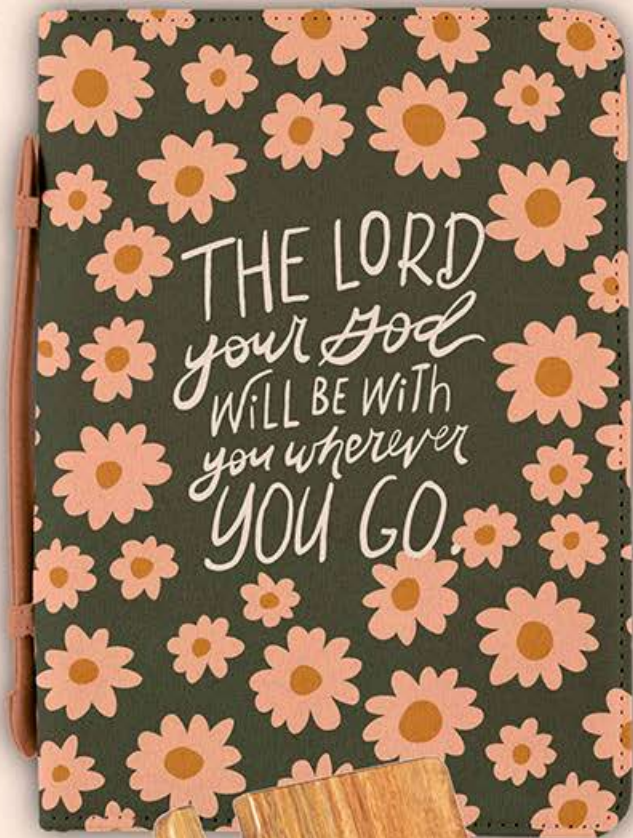 THE LORD
your God
WiLL BE WiTh
you wherever
YOU GO.